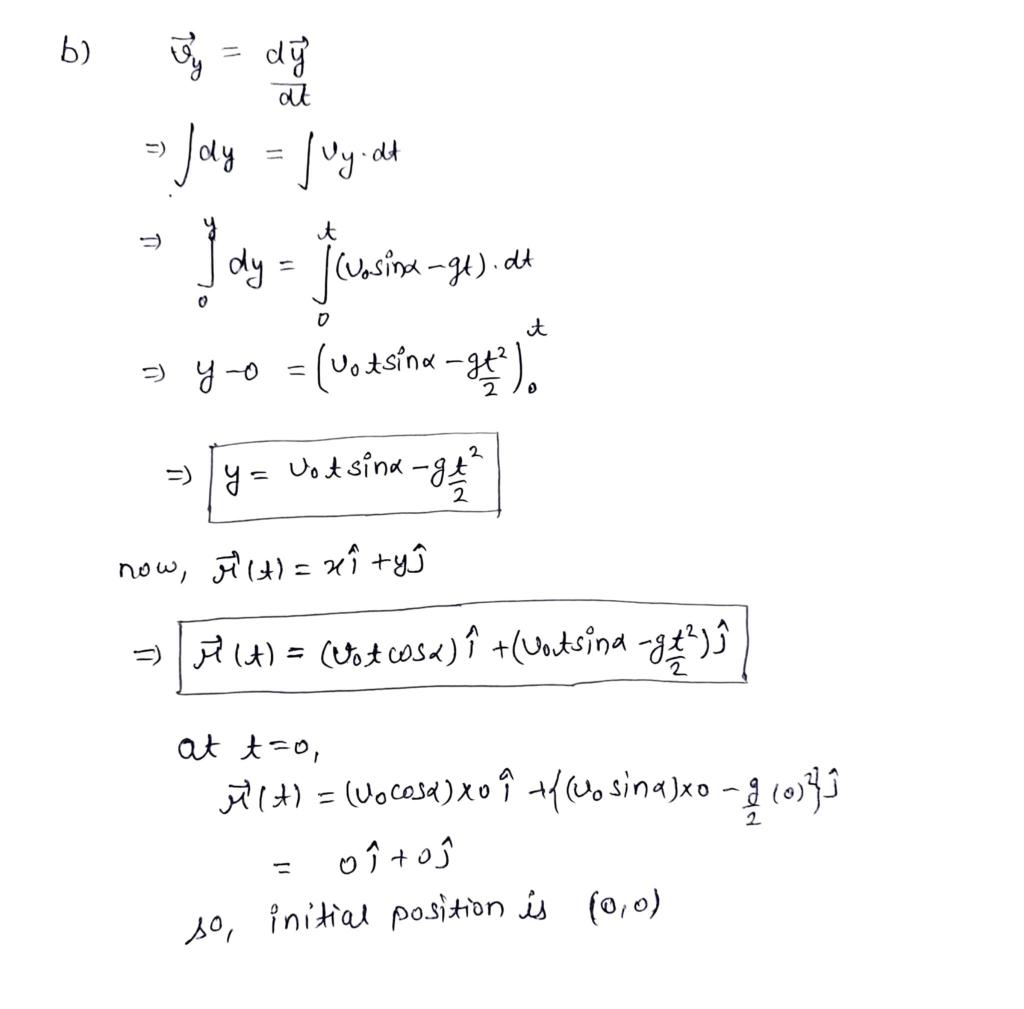 b) v⃗y = dy⃗/dt
=) ∫dy = ∫vy·dt
=) ∫₀ʸ dy = ∫₀ᵗ (v₀sinα - gt)·dt
=) y-0 = (v₀tsinα - gt²/2)₀ᵗ
=) y = v₀tsinα - gt²/2
now, r⃗(t) = xî + yĵ
=) r⃗(t) = (v₀tcosα)î + (v₀tsinα - gt²/2)ĵ
at t=0,
r⃗(t) = (v₀cosα)×0î + {(v₀sinα)×0 - g/2(0)²}ĵ
= 0î + 0ĵ
so, initial position is (0,0)